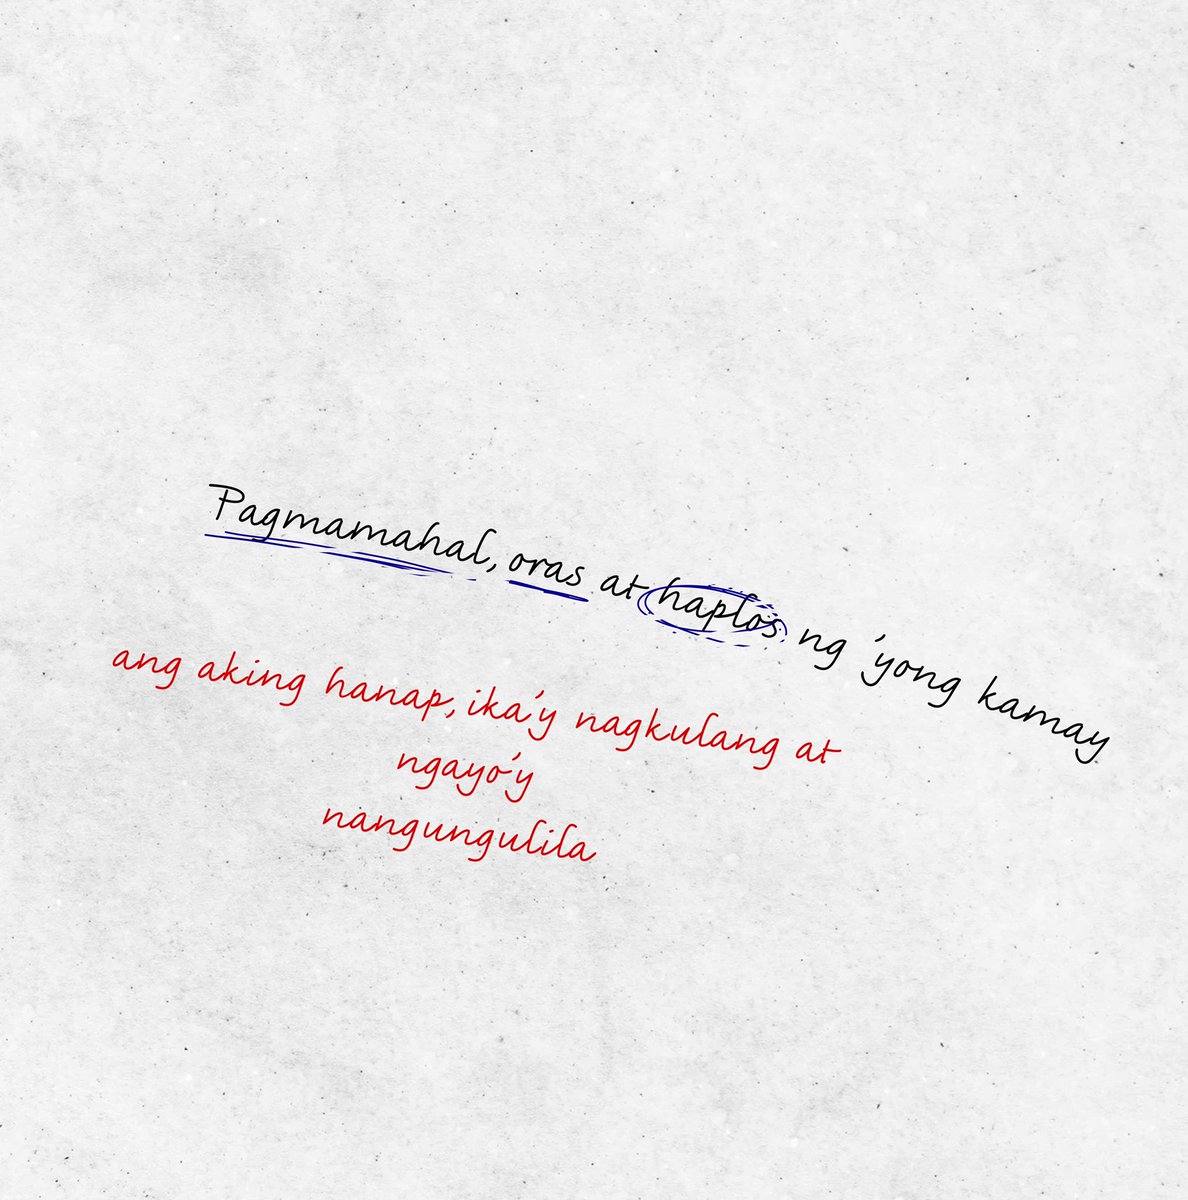 Pagmamahal, oras at haplos ng 'yong kamay
ang aking hanap, ika'y nagkulang at
ngayo'y
nangungulila